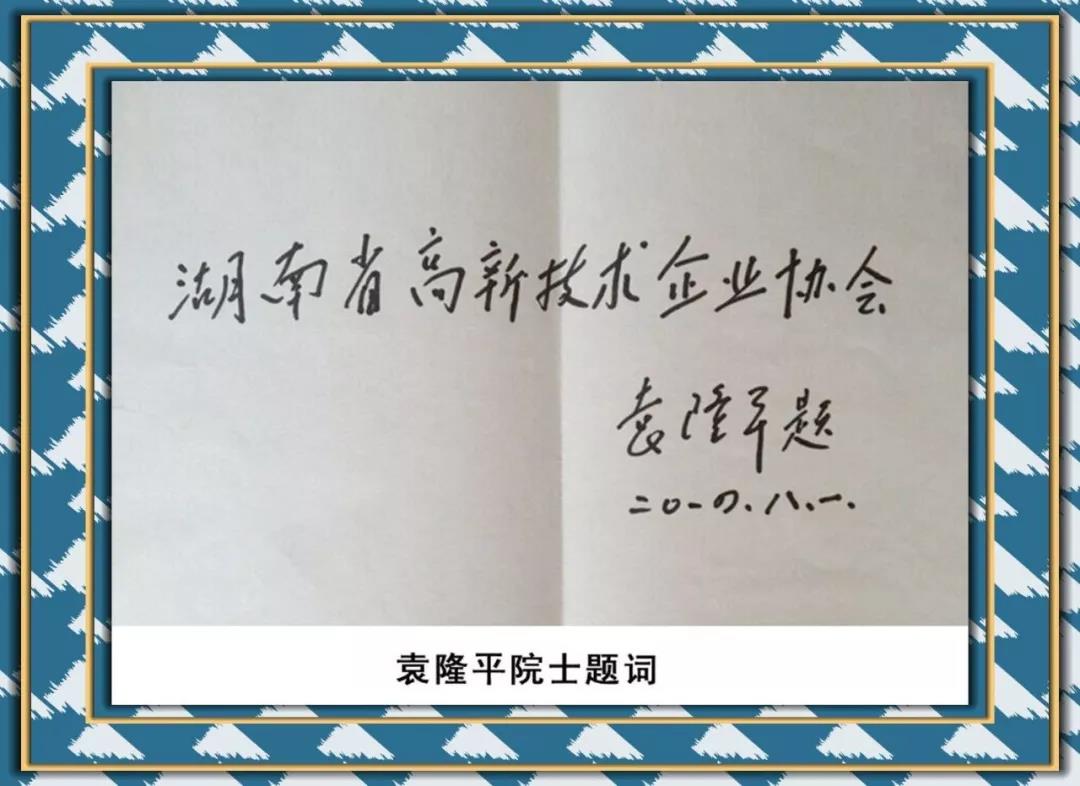 湖南省高新技术企业协会
袁隆平题
二〇一四、八、一、
袁隆平院士题词